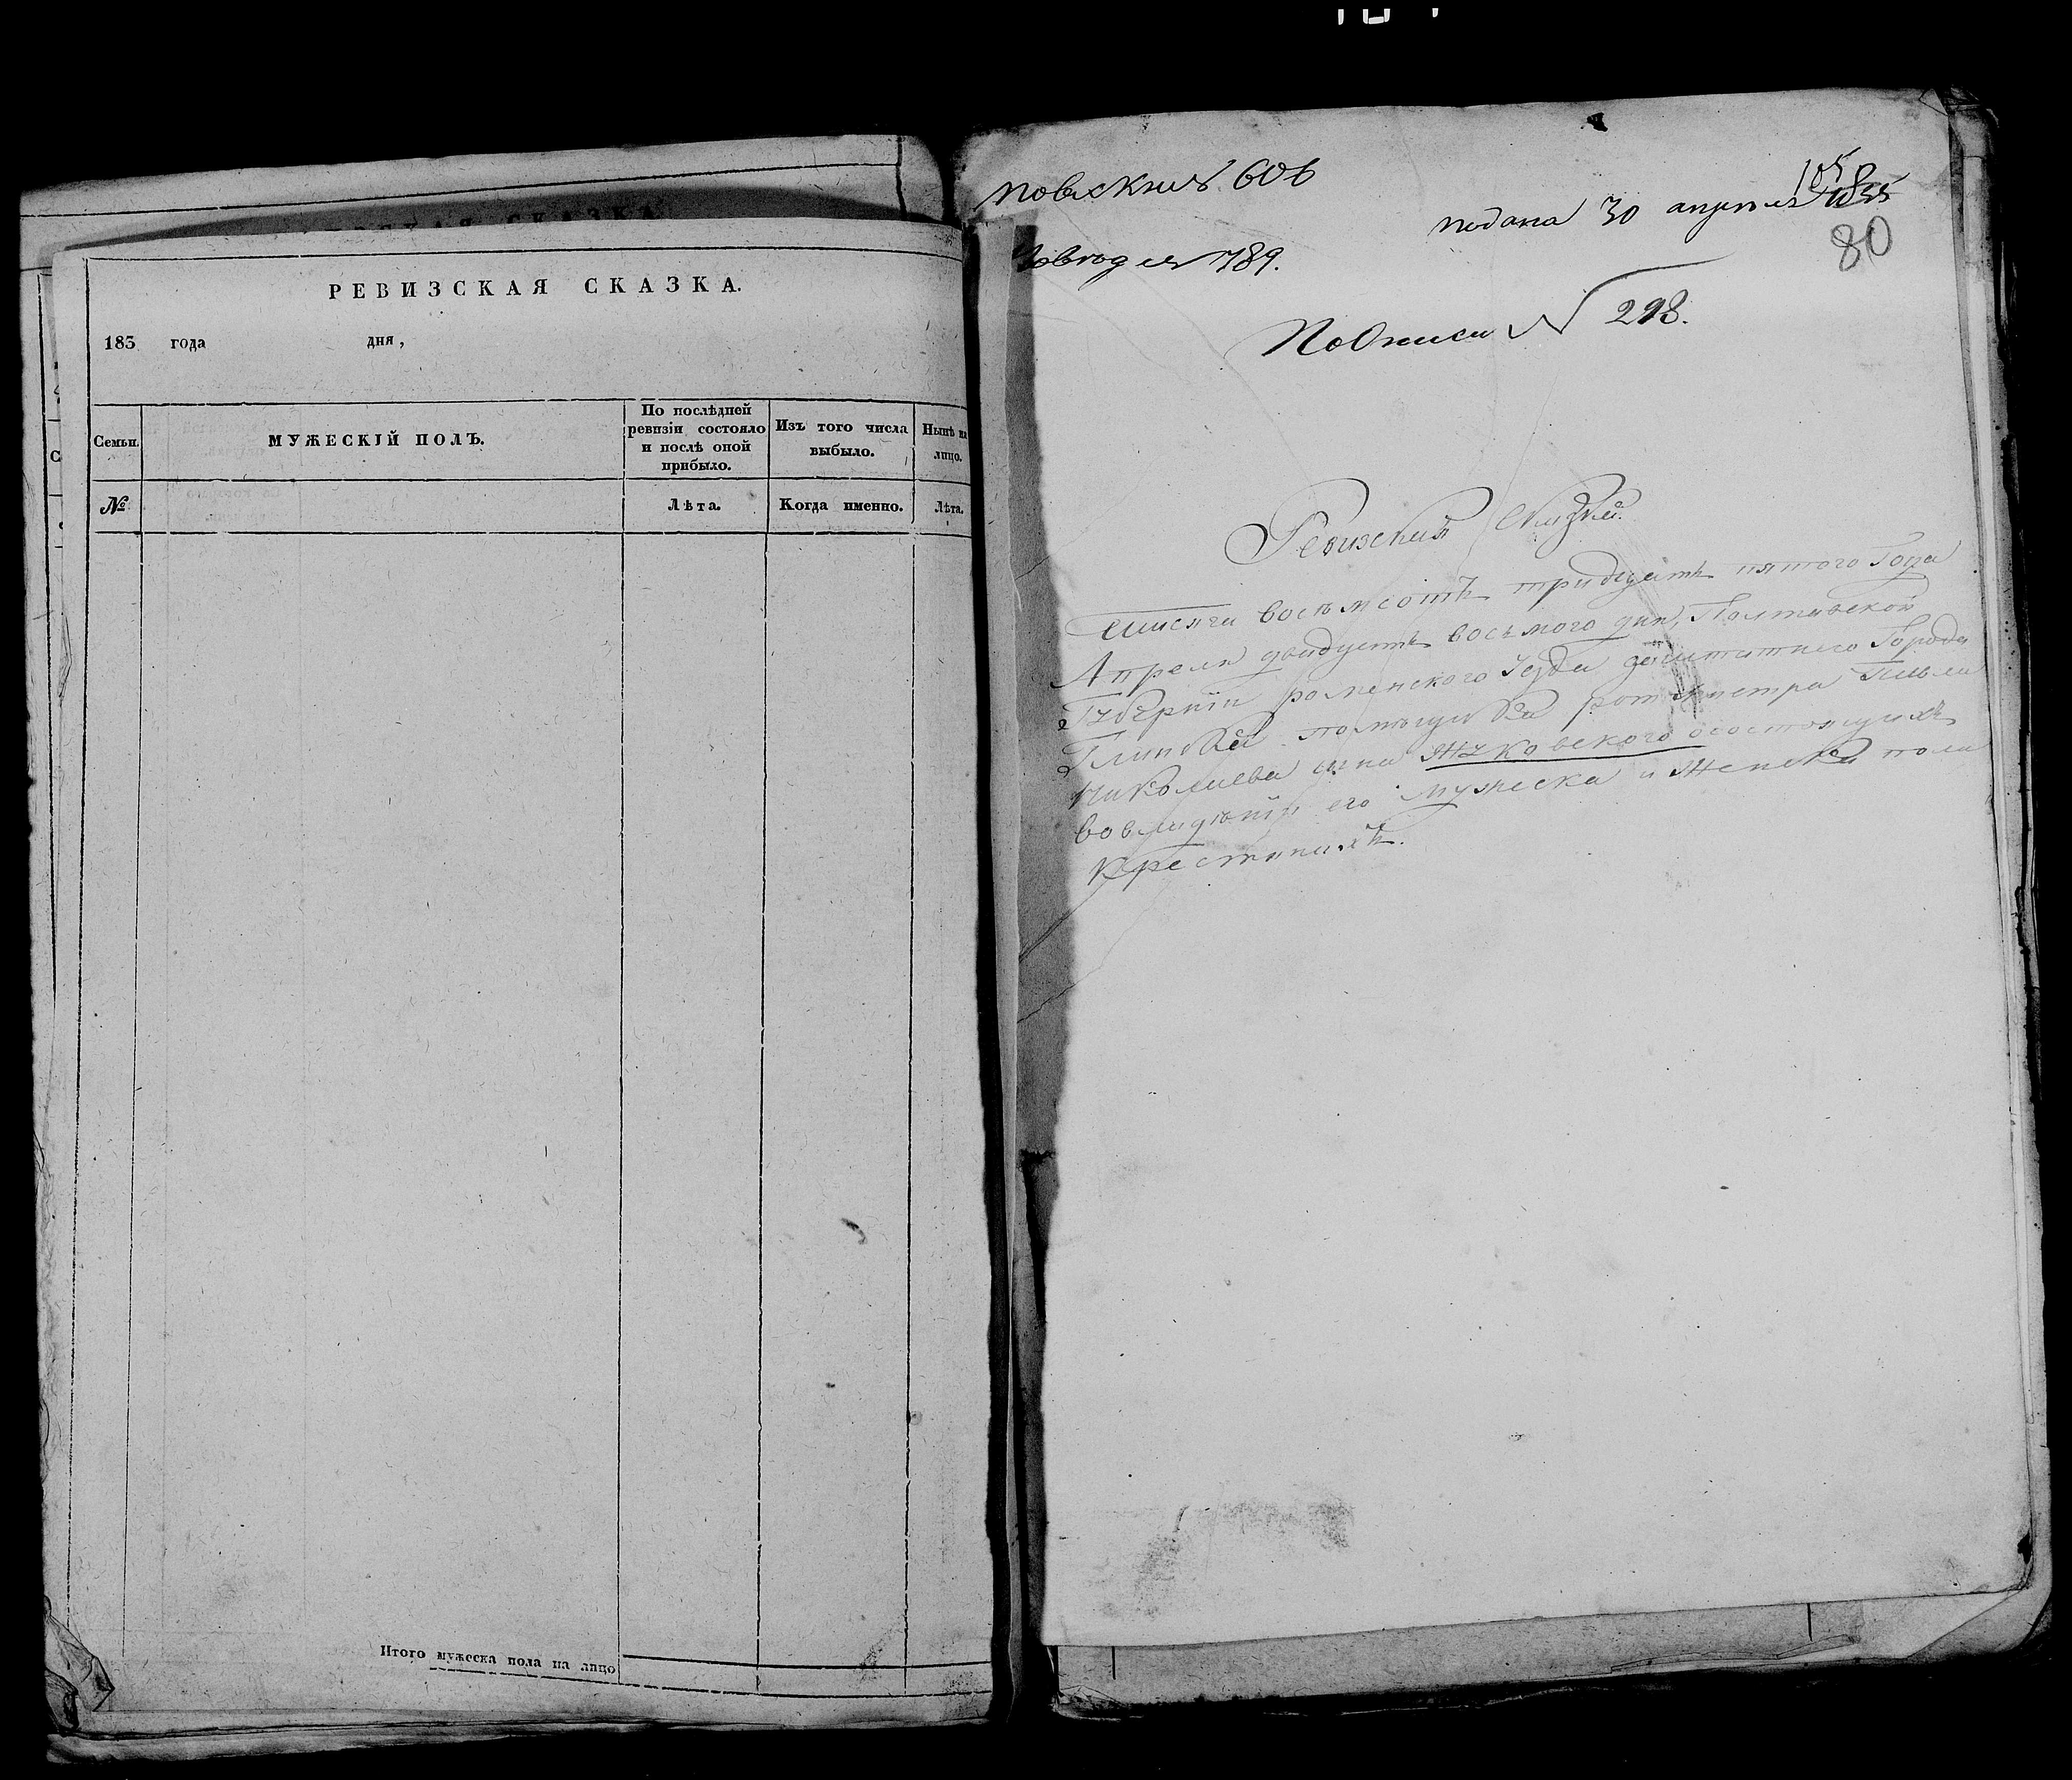 РЕВИЗСКАЯ СКАЗКА.
183 года дня,
Семьи.
МУЖЕСКІЙ ПОЛЪ.
По послѣдней
ревизіи состояло
и послѣ оной
прибыло.
Изъ того числа
выбыло.
Нынѣ на
лицо.
№
Лѣта.
Когда именно.
Лѣта.
Итого мужеска пола на лицо
606
подана 30 апреля 1835
80
789.
По описи № 298.
Ревизская Сказка.
Тысяча восемсотъ тридцать пятого Года
Апреля двадцать восьмого дня, Полтавской
Губерніи роменского Уезда заштатнего Города
Глинска помещика ротмистра Павла
Николаева сына Жуковского осостоящихъ
вовладѣніи его мужеска и женска пола
Крестянахъ.